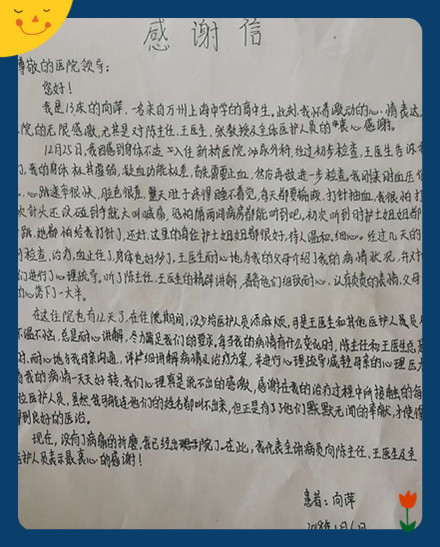 感谢信
尊敬的医院领导：
您好！
我是13床的向萍，一名来自万州上海中学的高中生。此刻，我怀着激动的心情表达
院的无限感激，尤其是对陈主任、王医生，张教授及全体医护人员的衷心感谢。
12月25日，我因感到身体不适入住新桥医院，泌尿外科，经过初步检查，王医生告诉
们，我的身体极其虚弱，凝血功能极差，急需要止血，然后再做进一步检查，我刚来时血压
，心跳速率很快，脸色很差，整天肚子疼得睡不着觉，每天都要输液，打针抽血，我很怕打
次针头还没碰到手就大叫喊痛，恐怕隔两间病房都能听到吧，初次听到时护士姐姐都
跳，她都怕给我打针了，还好，这里的每位护士姐姐都很好，待人温和，细心。经过几天的
检查，治疗，血止住了，身体也好多了，王医生耐心地为我的父母介绍了我的病情状况，并对
们进行了心理疏导，听了陈主任、王医生的精辟讲解，看着他们细致耐心，认真负责的表情，父母
心落下了一大半。
在这住院已有12天了，在住院期间，没少给医护人员添麻烦，可是王医生和其他医护人员
不温不恼，总是耐心讲解，尽力满足我们的要求，每当我的病情有什么变化时，陈主任和王医生总是
时，耐心地与我母亲沟通，详细讲解病情及治疗方案，并进行心理疏导减轻母亲的心理压力
着我的病情一天天好转，我们心理真是说不出的感激，感谢在我的治疗过程中所接触的每
位医护人员，虽然我可能连他们的姓名都叫不出来，但正是有了他们默默无闻的奉献，才使
得到良好的医治。
现在，没有了病痛的折磨，我已经出院了，在此，我代表全体病员向陈主任、王医生及全
医护人员表示最衷心的感谢！
患者：向萍
2018年1月6日